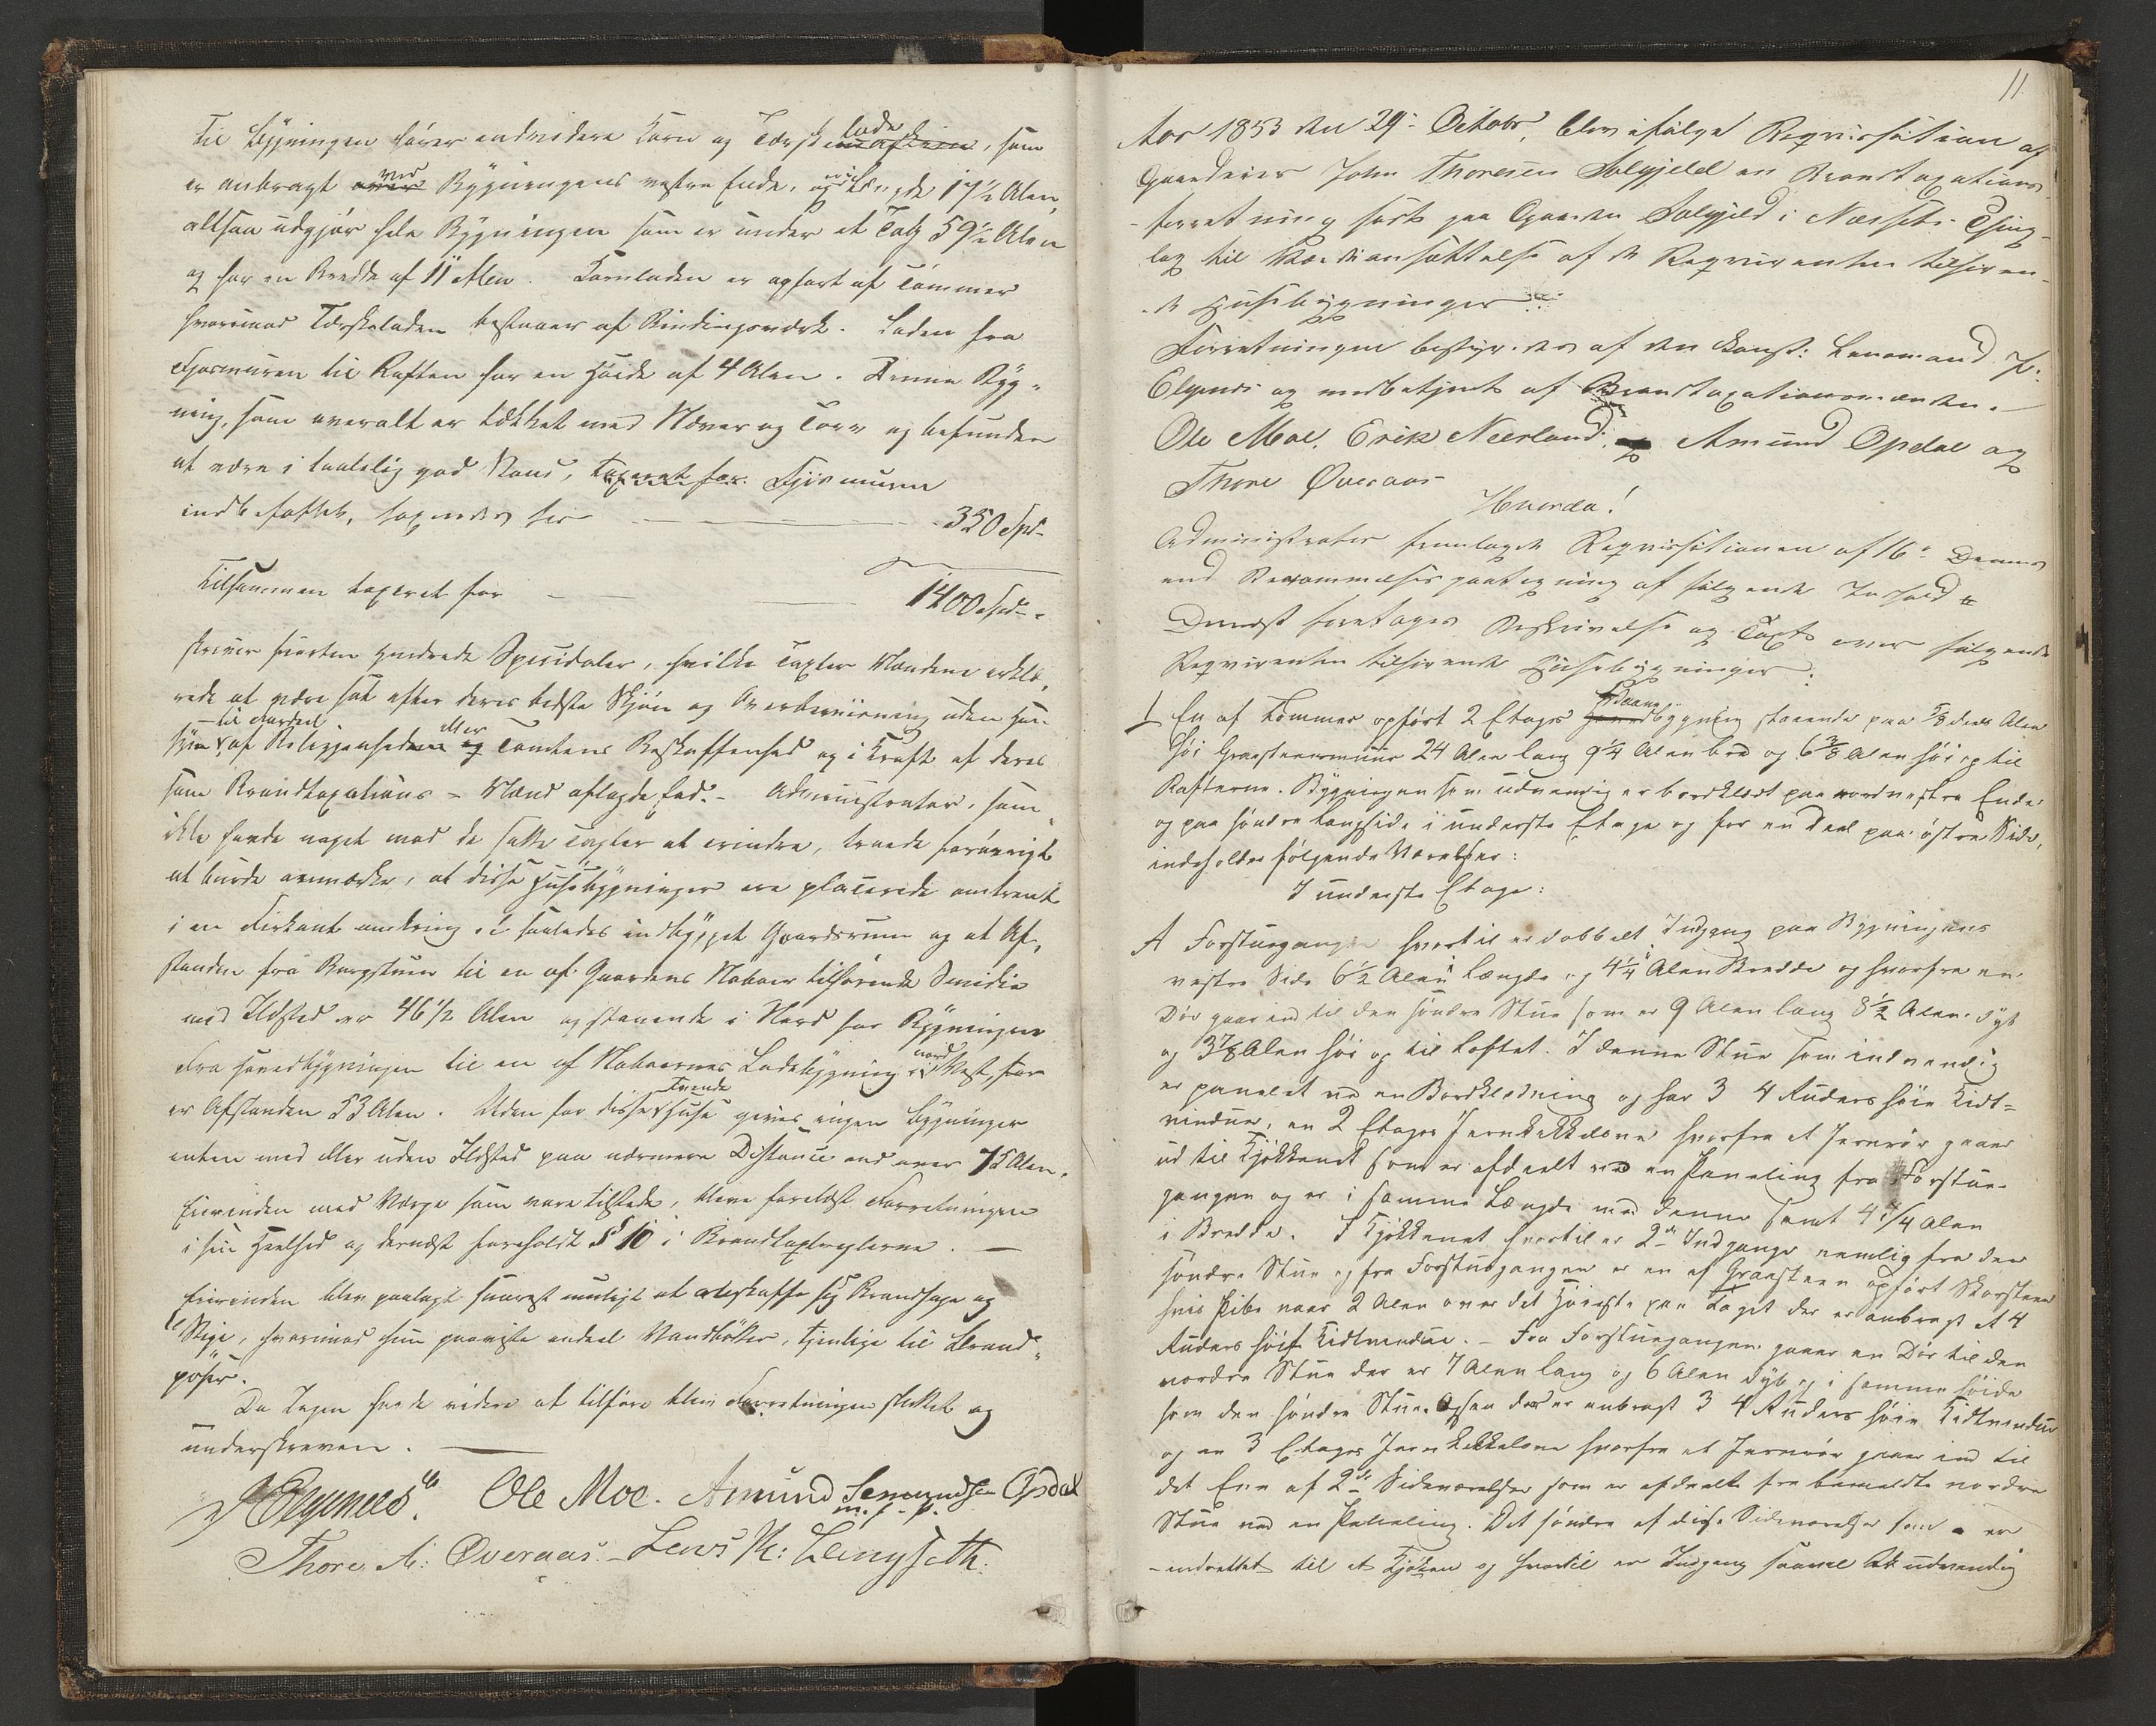 Til Bygningen hører endvidere Korn og Tærskelade maskine, som
er anbragt over ved Bygningens vestre Ende, og er i Længde 17½ Alen,
altsaa udgjør hele Bygningen som er under et Tag 59½ Alen
og har en Bredde af 11 Alen. Kornladen er opført af Tømmer
hvorimod Tærskeladen bestaaer af Bindingsværk. Laden fra
Fjøsmuren til Raften har en Høide af 4 Alen. Denne Byg-
ning, som overalt er tækket med Næver og Torv og befunden
at være i taalelig god Stand, taxeret for Fjøsmuren
indbefattet, taxeredes for 350 Spd
Tilsammen taxeret for 1400 Spd.
skriver fiorten Hundrede Speciedaler, hvilke Taxter Mændene erklæ-
rede at være sat efter deres bedste Skjøn og Overbeviisning uden Hen-
syn til Værdi af Beliggenheden og eller Tomtens Beskaffenhed og i Kraft af deres
som Brandtaxations-Mænd aflagde Eed. - Administrator, som
ikke havde noget mod de satte Taxter at erindre, troede forøvrigt
at burde anmærke, at disse Huusbygninger ere placerede omtrent
i en Firkant omkring et saaledes indbygget Gaardsrum og at Af-
standen fra Borgstuen til en af Gaardens Naboer tilhørende Smidie
med Ildsted er 46 1/2 Alen og staaende i Nord for Bygningen
Fra Hovedbygningen til en af Naboernes Ladebygning i nord Vest, for
er Afstanden 53 Alen. Uden for disse tvende Huse gives ingen Bygninger
enten med eller uden Ildsted paa nærmere Distance end over 75 Alen.
Eierinden med Værge som vare tilstede, bleve forelæst Forretningen
i sin Heelhed og dernæst foreholdt § 10 i Brandtaxtreglerne. —
Eierinden blev paalagt snarest muligt at anskaffe sig Brandhage og
Stige, hvorimod hun paaviste endeel Vandbøtter, tjenlige til Brand-
pøser.
Da Ingen havde videre at tilføre blev Forretningen sluttet og
underskreven. —
J Elgenes. Ole Moe. Amund Semundsen Opdal
m. f. P.
Thore A: Øveraas. - Lars K: Lengseth.
11
Aar 1853 den 29: Octobr, blev ifølge Reqvisition af
Gaardeier John Thoresen Solgjeld en Brandtaxations-
-forretning holdt paa Gaarden Solgjeld i Næssets Thing-
lag til Værdiansættelse af de Reqvirenten tilhøren-
de Huusbygninger
Forretningen bestyredes af den Const: Lensmand J:
Elgenes og medbetjent af Brandtaxationsmændene. —
Ole Moe, Erik Neerland, og Amund Opdal og
Thore Øveraas
Hvorda!
Administrator fremlagde Reqvisitionen af 16: Dennes
med Berammelsespaategning af følgende Inhold
Dernæst foretages Beskrivelse og Taxt over følgende
Reqvirenten tilhørende Huusbygninger:
1 En af Tømmer opført 2 Etages Vaanebygning staaende paa 5/8 deels Alen
høi Graasteensmuur 24 Alen lang 9¼ Alen bred og 6⅜ Alen høi op til
Rafterne. Bygningen som udvendig er bordklædt paa nordvestre Ende
og paa søndre Langside i underste Etage og for en Deel paa østre Side,
indeholder følgende Værelser:
I underste Etage:
A Forstuegangen hvortil er dobbelt Indgang paa Bygningens
vestre Side 6½ Alen i Længde og 4¼ Alen Bredde og hvorfra en
Dør gaar ind til den søndre Stue som er 9 Alen lang 8½ Alen dyb
og 3⅞ Alen høi op til Loftet. I denne Stue som indvendig
er panelet ved en Bordklædning og har 3 4 Ruders høie Kidt-
vinduer, en 2 Etages Jernkakkelovn hvorfra et Jernrør gaaer
ud til Kjøkkenet som er afdeelt ved en Paneling fra Forstue-
gangen og er i samme Længde med denne samt 4 1/4 Alen
i Bredde. I Kjøkkenet hvortil er 2de Indgange nemlig fra den
søndre Stue og fra Forstuegangen er en af Graasteen opført Skorsteen
hvis Pibe naar 2 Alen over det Høieste paa Taget der er anbragt et 4
Ruders høit Kidtvindue. - Fra Forstuegangen gaaer en Dør til den
nordre Stue der er 7 Alen lang og 6 Alen dyb og i samme Høide
som den søndre Stue. Ogsaa der er anbragt 3 4 Ruders høie Kidtvinduer
og en 3 Etages Jernkakkelovn hvorfra et Jernrør gaar ind til
det Ene af 2de Sideværelser som er afdeelte fra bemeldte nordre
Stue ved en Paneling. Det søndre af disse Sideværelser som er
-indrettet til et Kjøken og hvortil er Indgang saavel udvendig